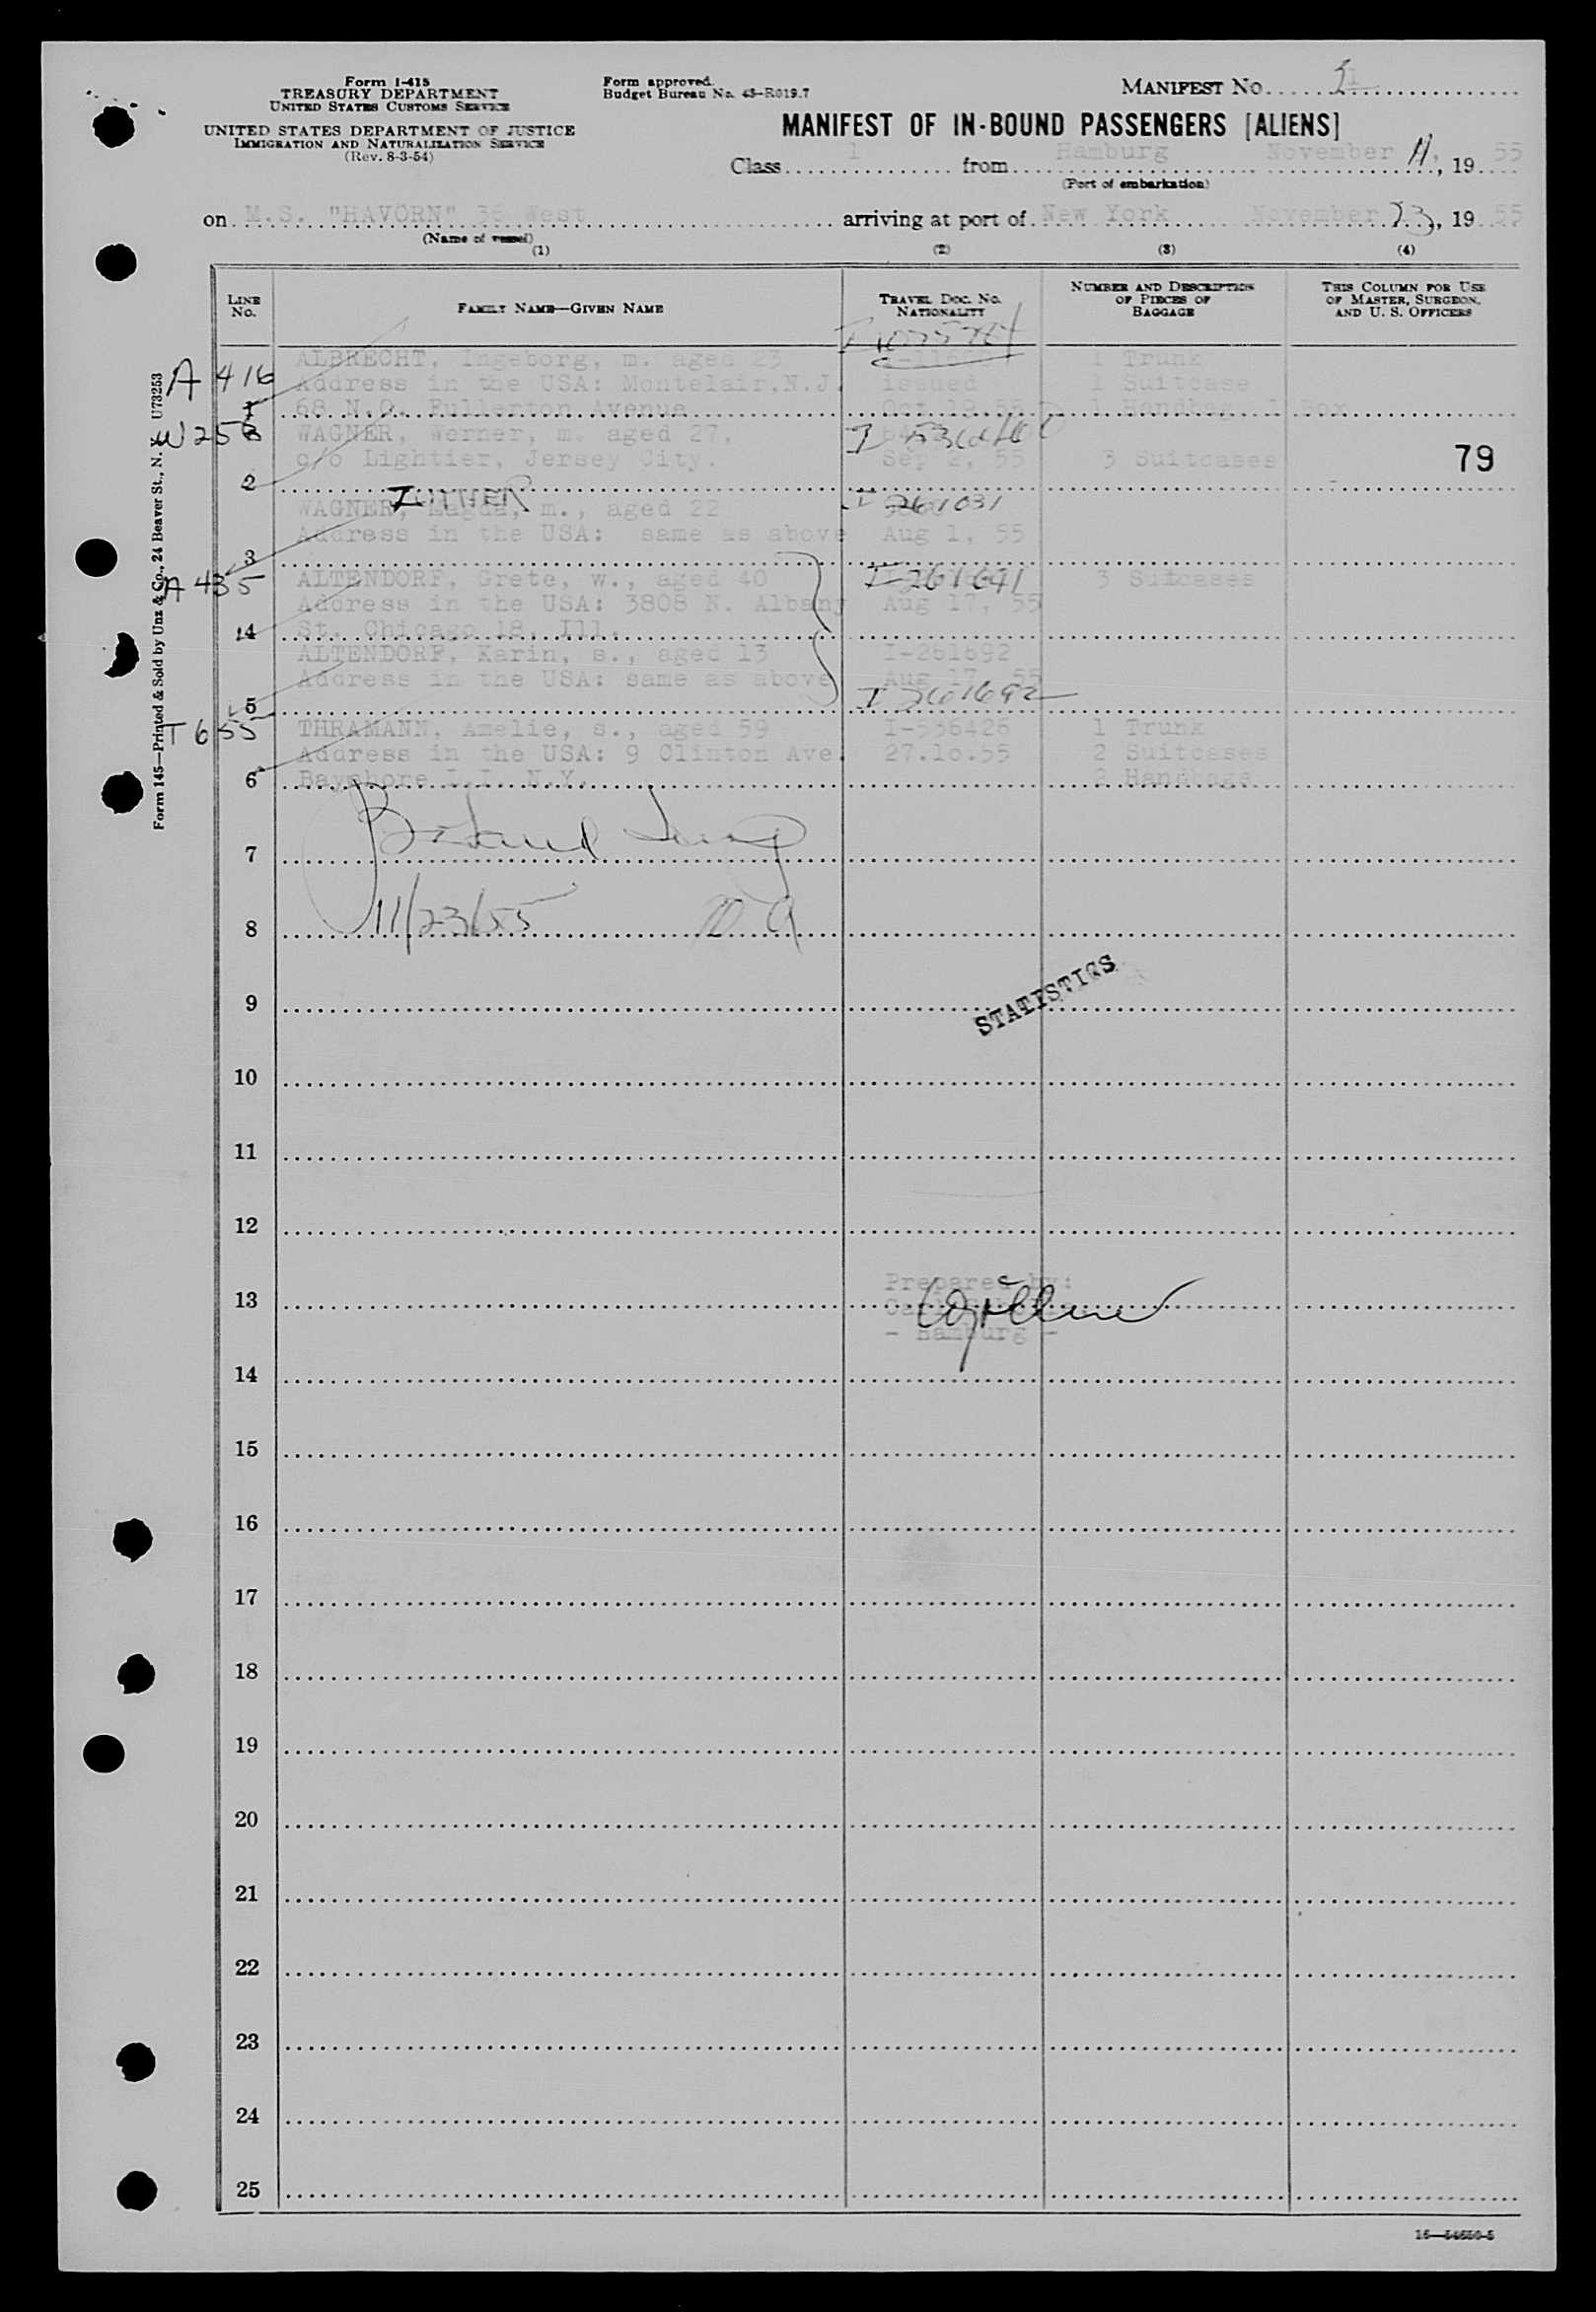 Form I-415
TREASURY DEPARTMENT
UNITED STATES CUSTOMS SERVICE
UNITED STATES DEPARTMENT OF JUSTICE
IMMIGRATION AND NATURALIZATION SERVICE
(Rev. 8-3-54)
Form approved.
Budget Bureau No. 43-R019.7
MANIFEST No. 1
MANIFEST OF IN-BOUND PASSENGERS [ALIENS]
Class 1 from Hamburg November 11, 1955
(Port of embarkation)
on M.S. "HAVÖRN" 36 West arriving at port of New York November 23, 1955
(Name of vessel)
(1) (2) (3) (4)
LINE No. FAMILY NAME—GIVEN NAME TRAVEL DOC. No. NATIONALITY NUMBER AND DESCRIPTION OF PIECES OF BAGGAGE THIS COLUMN FOR USE OF MASTER, SURGEON, AND U. S. OFFICERS
ALBRECHT, Ingeborg, m. aged 23 1 Trunk
A 416 Address in the USA: Montelair,N.J. issued 1 Suitcase
1 68 N.O. Fullerton Avenue Oct 19,55 1 Handbag, 1 Box
W 256 WAGNER, Werner, m. aged 27,
c/o Lightier, Jersey City. Sep 2, 55 3 Suitcases 79
2
WAGNER, Magda, m., aged 22 I 261031
Address in the USA: same as above Aug 1, 55
3
A 435 ALTENDORF, Grete, w., aged 40 I-261691 3 Suitcases
Address in the USA: 3808 N. Albany Aug 17, 55
4 St. Chicago 18, Ill.
ALTENDORF, Karin, s., aged 13 I-261692
Address in the USA: same as above Aug 17, 55
5 I 261692
T 655 THRAMANN, Amelie, s., aged 59 I-536426 1 Trunk
Address in the USA: 9 Clinton Ave. 27.10.55 2 Suitcases
6 Bayshore L.I. N.Y. 2 Handbags
7
11/23/55
8
9
STATISTICS
10
11
12
Prepared by:
13
- Hamburg -
14
15
16
17
18
19
20
21
22
23
24
25
16—54650-5
Form 145—Printed & Sold by Unz & Co., 24 Beaver St., N. Y. U73253